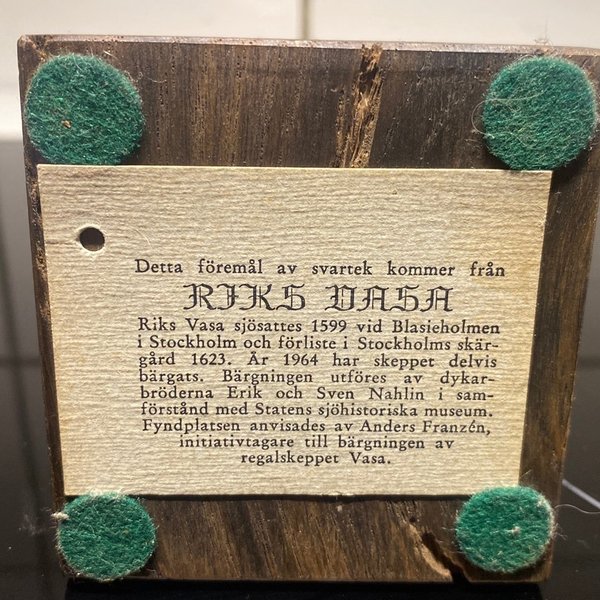 Detta föremål av svartek kommer från
RIKS VASA
Riks Vasa sjösattes 1599 vid Blasieholmen
i Stockholm och förliste i Stockholms skär-
gård 1623. År 1964 har skeppet delvis
bärgats. Bärgningen utföres av dykar-
bröderna Erik och Sven Nahlin i sam-
förstånd med Statens sjöhistoriska museum.
Fyndplatsen anvisades av Anders Franzén,
initiativtagare till bärgningen av
regalskeppet Vasa.